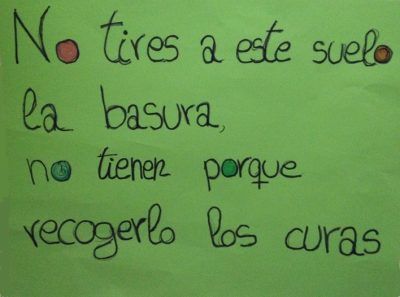 No tires a este suelo
la basura,
no tienen porque
recogerlo los curas